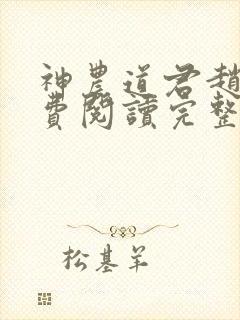 神農道君趙
費閱讀完整
松基羊